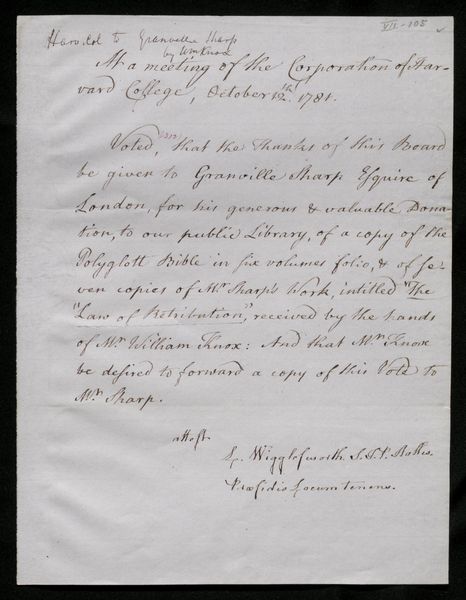 VII-105
Harv. Col to Granville Sharp
by Wm Knox
At a meeting of the Corporation of Har-
vard College, October 12th. 1781.
Voted, that the Thanks of this Board
be given to Granville Sharp Esquire of
London, for his generous & valuable Dona-
tion, to our public Library, of a copy of the
Polyglott Bible in six volumes folio, & of se-
ven copies of Mr. Sharp's Work, intitled "The
"Law of Retribution", received by the hands
of Mr. William Knox: And that Mr. Knox
be desired to forward a copy of this Vote to
Mr. Sharp.
attest.
E. Wigglesworth. S.T.P. Hollis.
Præsidis locum tenens.